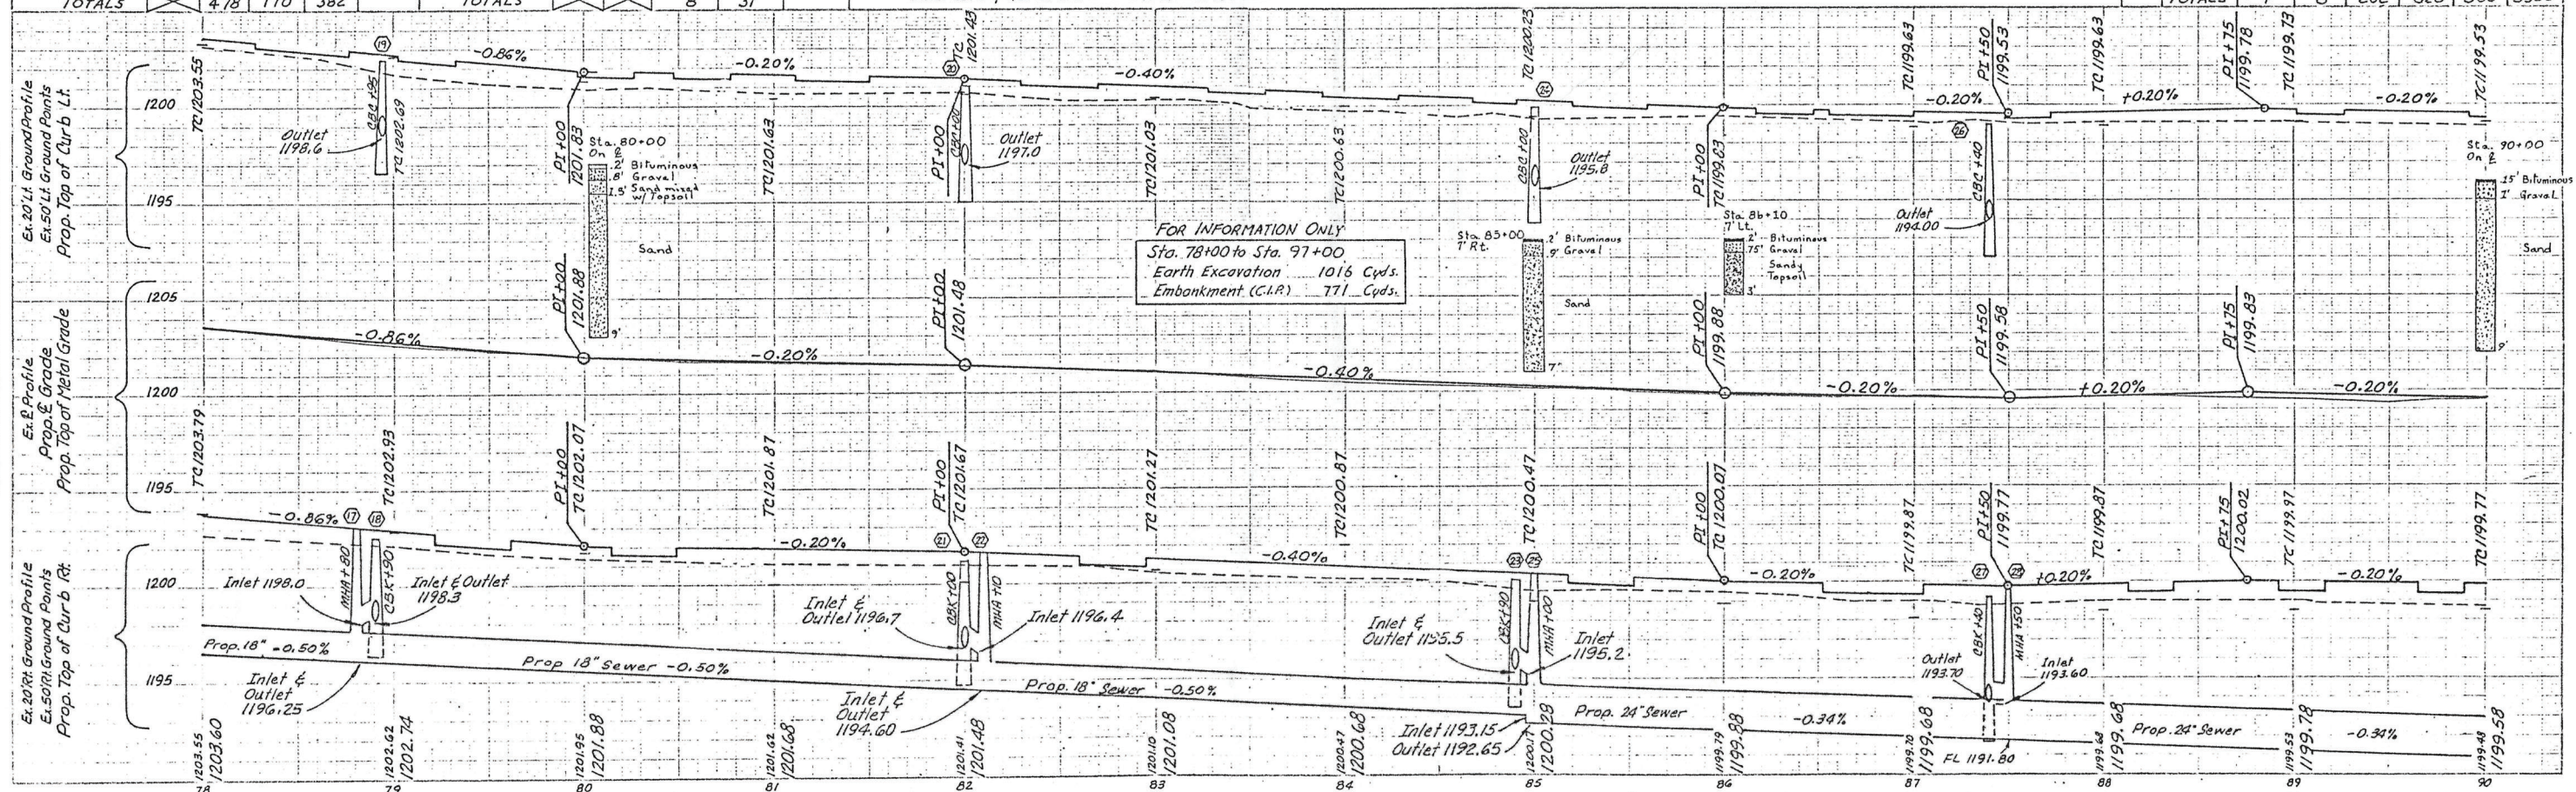 TOTALS 478 110 382 TOTALS 8 31 TOTALS
Ex. 20' Lt. Ground Profile
Ex. 50' Lt. Ground Points
Prop. Top of Curb Lt.
1200
1195
TC 1203.55
-0.86%
19
CBC +95
TC 1202.69
Outlet
1198.6
PI+00
1201.83
Sta. 80+00
On ℄
.2' Bituminous
.8' Gravel
1.5' Sand mixed
w/ Topsoil
Sand
9'
-0.20%
TC 1201.63
20
TC
1201.43
PI+00
CBC+00
Outlet
1197.0
-0.40%
TC 1201.03
TC 1200.63
TC 1200.23
24
CBC +00
Outlet
1195.8
Sta. 85+00
7' Rt.
.2' Bituminous
.9' Gravel
Sand
7'
PI+00
TC 1199.83
Sta. 86+10
7' Lt.
.2' Bituminous
.75' Gravel
Sandy
Topsoil
3'
TC 1199.63
-0.20%
PI+50
1199.53
26
CBC +40
Outlet
1194.00
TC 1199.63
+0.20%
PI+75
1199.78
TC 1199.73
-0.20%
TC 1199.53
Sta. 90+00
On ℄
.15' Bituminous
1' Gravel
Sand
9'
FOR INFORMATION ONLY
Sta. 78+00 to Sta. 97+00
Earth Excavation 1016 Cyds.
Embankment (C.I.P.) 771 Cyds.
Ex. ℄ Profile
Prop. ℄ Grade
Prop. Top of Metal Grade
1205
1200
1195
-0.86%
PI+00
1201.88
-0.20%
PI+00
1201.48
-0.40%
PI+00
1199.88
-0.20%
PI+50
1199.58
+0.20%
PI+75
1199.83
-0.20%
Ex. 20' Rt. Ground Profile
Ex. 50' Rt. Ground Points
Prop. Top of Curb Rt.
1200
1195
TC 1203.79
-0.86%
17
18
TC 1202.93
MHA +80
CBK +90
Inlet 1198.0
Inlet & Outlet
1198.3
Prop. 18" -0.50%
Inlet &
Outlet
1196.25
PI+00
TC 1202.07
Prop 18" Sewer -0.50%
-0.20%
TC 1201.87
PI+00
TC 1201.67
21
22
CBK +00
MHA +10
Inlet &
Outlet 1196.7
Inlet 1196.4
Inlet &
Outlet
1194.60
Prop. 18" Sewer -0.50%
TC 1201.27
-0.40%
TC 1200.87
TC 1200.47
23
25
CBK +90
MHA +00
Inlet &
Outlet 1195.5
Inlet
1195.2
Inlet 1193.15
Outlet 1192.65
Prop. 24" Sewer -0.34%
PI+00
TC 1200.07
-0.20%
TC 1199.87
PI+50
1199.77
27
28
CBK +40
MHA +50
Outlet
1193.70
Inlet
1193.60
FL 1191.80
+0.20%
TC 1199.87
PI+75
1200.02
TC 1199.97
-0.20%
TC 1199.77
Prop. 24" Sewer -0.34%
1203.55
1203.60
1202.62
1202.74
1201.95
1201.88
1201.62
1201.68
1201.41
1201.48
1201.10
1201.08
1200.47
1200.68
1200.17
1200.28
1199.79
1199.88
1199.70
1199.68
1199.68
1199.53
1199.78
1199.48
1199.58
78 79 80 81 82 83 84 85 86 87 88 89 90